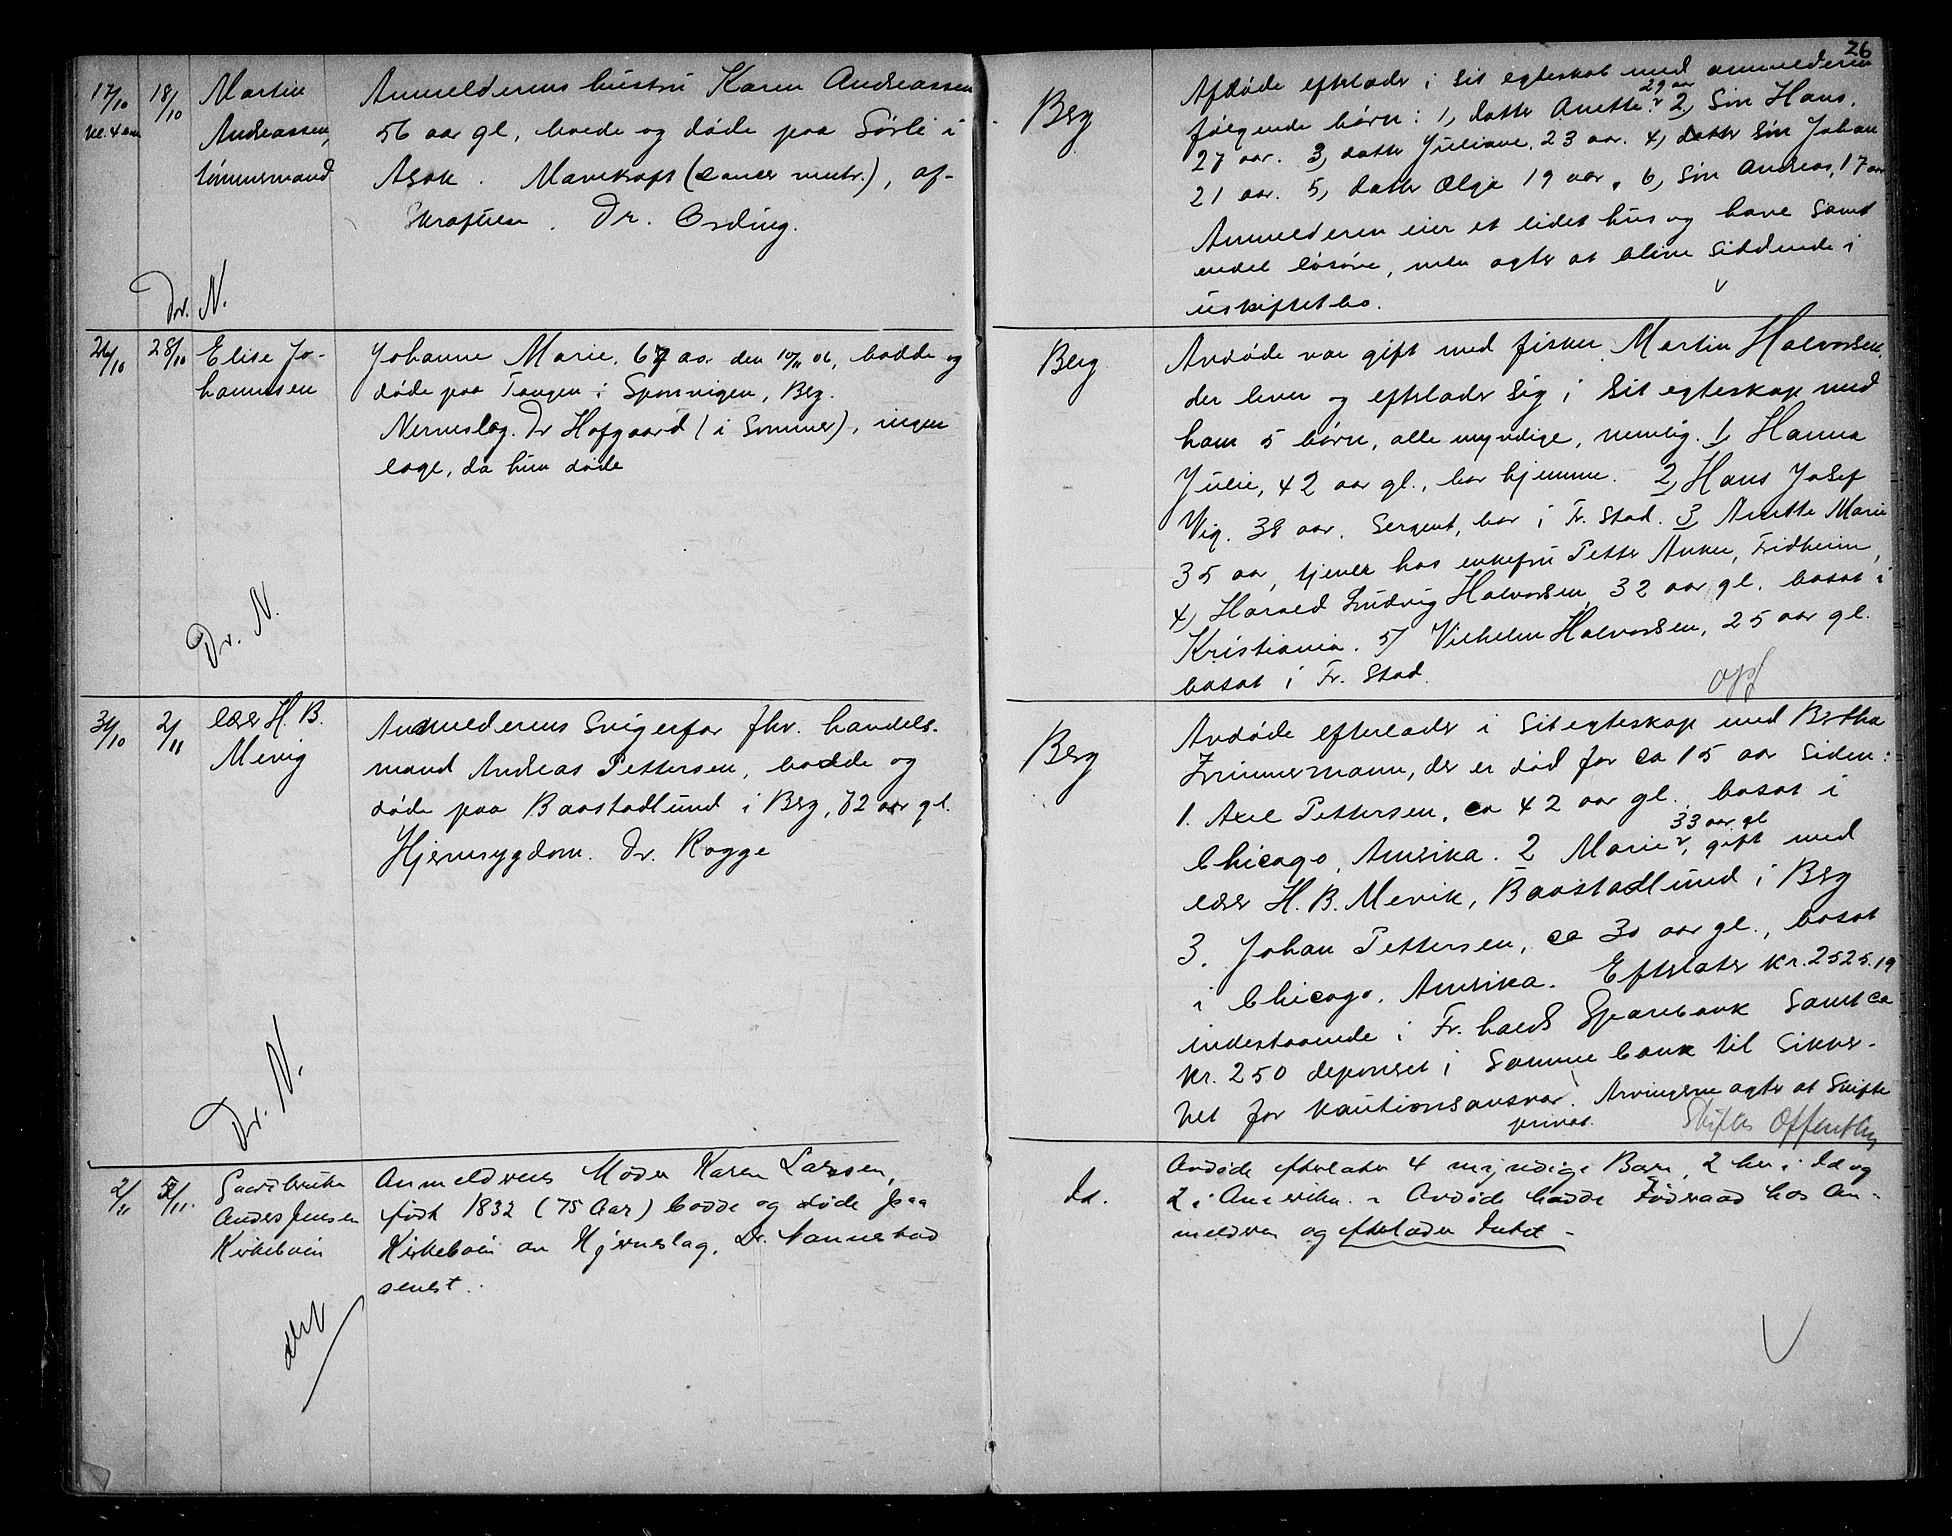 26
17/10 kl. 4 em
18/10
Martin
Andreassen,
tømmermand
Anmelderens hustru Karen Andreassen
56 aar gl, boede og døde paa Sørli i
Asak. Mavekræft (cancer ventr.), af-
kræftelse. Dr. Ording.
Dr. N.
Berg
Afdøde efterlader i sit egteskab med anmelderen
følgende børn: 1, datter Anette 29 aar 2, Søn Hans,
27 aar. 3, datter Juliane, 23 aar. 4, Søn Johan
21 aar. 5, datter Olga 19 aar, 6, Søn Andreas, 17 aar
Anmelderen eier et lidet hus og have samt
endel løsøre, men agter at blive siddende i
uskiftet bo.
26/10
28/10
Elise Jo-
hannesen
Johanne Marie, 67 aar den 10/11 06, bodde og
døde paa Tangen i Sponvigen, Berg.
Nerveslag. Dr Hofgaard (i Sommer), ingen
læge, da hun døde
Dr. N.
Berg
Avdøde var gift med fisker Martin Halvorsen,
der lever og efterlader sig i sit egteskap med
ham 5 børn, alle myndige, nemlig. 1, Hanna
Julie, 42 aar gl., bor hjemme. 2, Hans Josef
Vig. 38 aar. Sergent, bor i Fr. stad. 3, Anette Marie
35 aar, tjener hos enkefru Petter Anker, Fridheim,
4, Harald Ludvig Halvorsen, 32 aar gl. bosat i
Kristiania. 5/ Vilhelm Halvorsen, 25 aar gl.
bosat i Fr. Stad.
opf
31/10
2/11
lærer H. B.
Mevig
Anmelderens Svigerfar fhv. handels-
mand Andreas Pettersen, bodde og
døde paa Baastadlund i Berg, 72 aar gl.
Hjernesygdom. Dr. Rogge
Dr. N.
Berg
Avdøde efterlader i sit egteskap med Bertha
Zimmermann, der er død for ca 15 aar siden:
1. Axel Pettersen, ca 42 aar gl., bosat i
Chicago, Amerika. 2 Marie, 33 aar gl gift med
lærer H. B. Mevik, Baastadlund i Berg
3. Johan Pettersen, ca 30 aar gl., bosat
i Chicago, Amerika. Efterlater kr. 2525.19
indestaaende i Fr. halds Sparebank samt ca
kr. 250 deponert i samme bank til sikker-
het for kautionsansvar. Arvingerne agter at skifte
privat.
Skiftes Offentlig
2/11
5/11.
Gaardbruker
Anders Jensen
Kirkebøen
Anmelderens Moder Karen Larsen,
født 1832 (75 Aar) bodde og døde paa
Kirkebøen av Hjerneslag, Dr. Nannestad
senest.
Id.
Avdøde efterlater 4 myndige Børn, 2 her i Id og
2 i Amerika. - Avdøde hadde Føderaad hos An-
melderen og efterlader Intet -